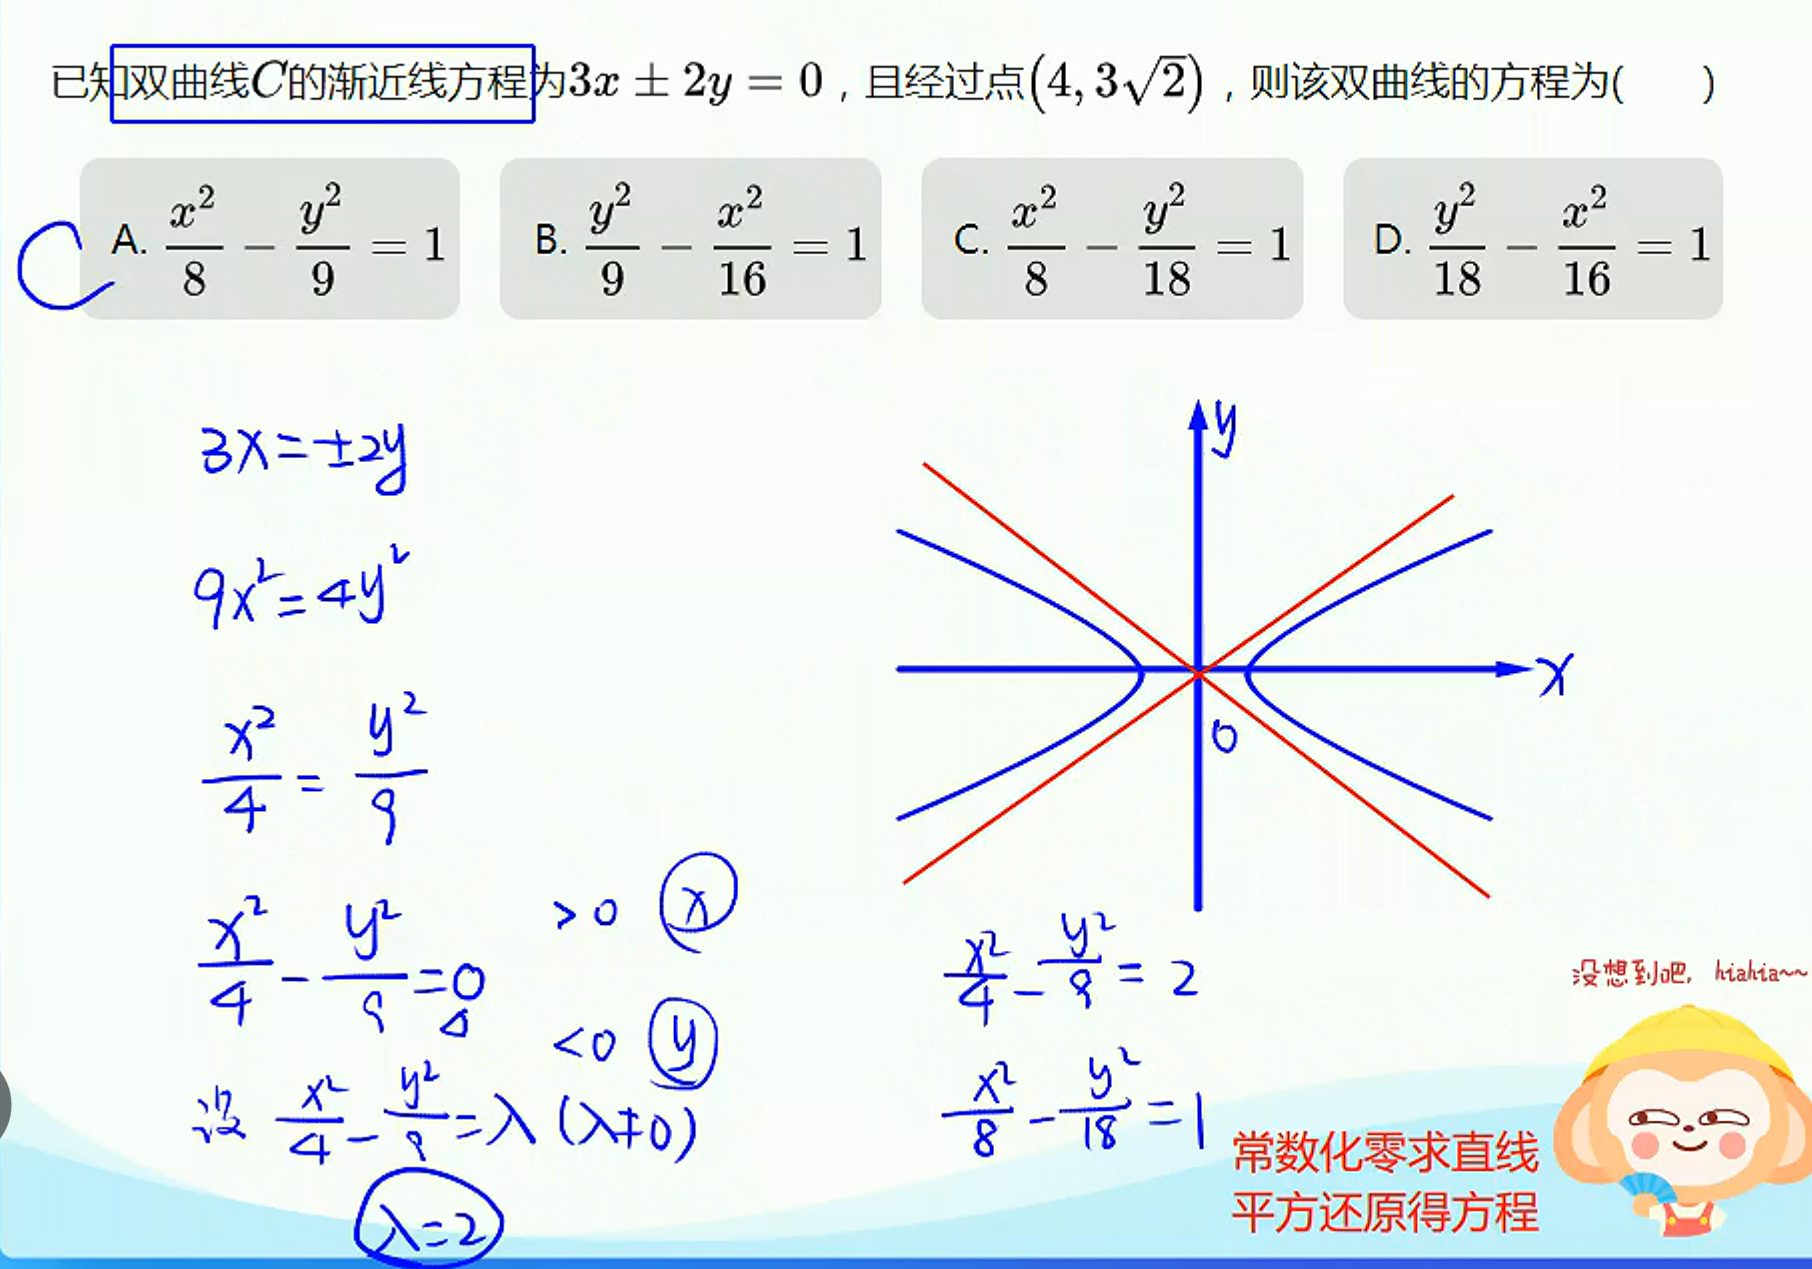 已知双曲线C的渐近线方程为3x ± 2y = 0，且经过点(4, 3√2)，则该双曲线的方程为(　　)
A. x²/8 − y²/9 = 1　B. y²/9 − x²/16 = 1　C. x²/8 − y²/18 = 1　D. y²/18 − x²/16 = 1
C
3x=±2y
9x²=4y²
x²/4 = y²/9
x²/4 − y²/9 = 0
>0 x
<0 y
设 x²/4 − y²/9 = λ (λ≠0)
λ=2
y
x
0
x²/4 − y²/9 = 2
x²/8 − y²/18 = 1
没想到吧, hiahia~~
常数化零求直线
平方还原得方程